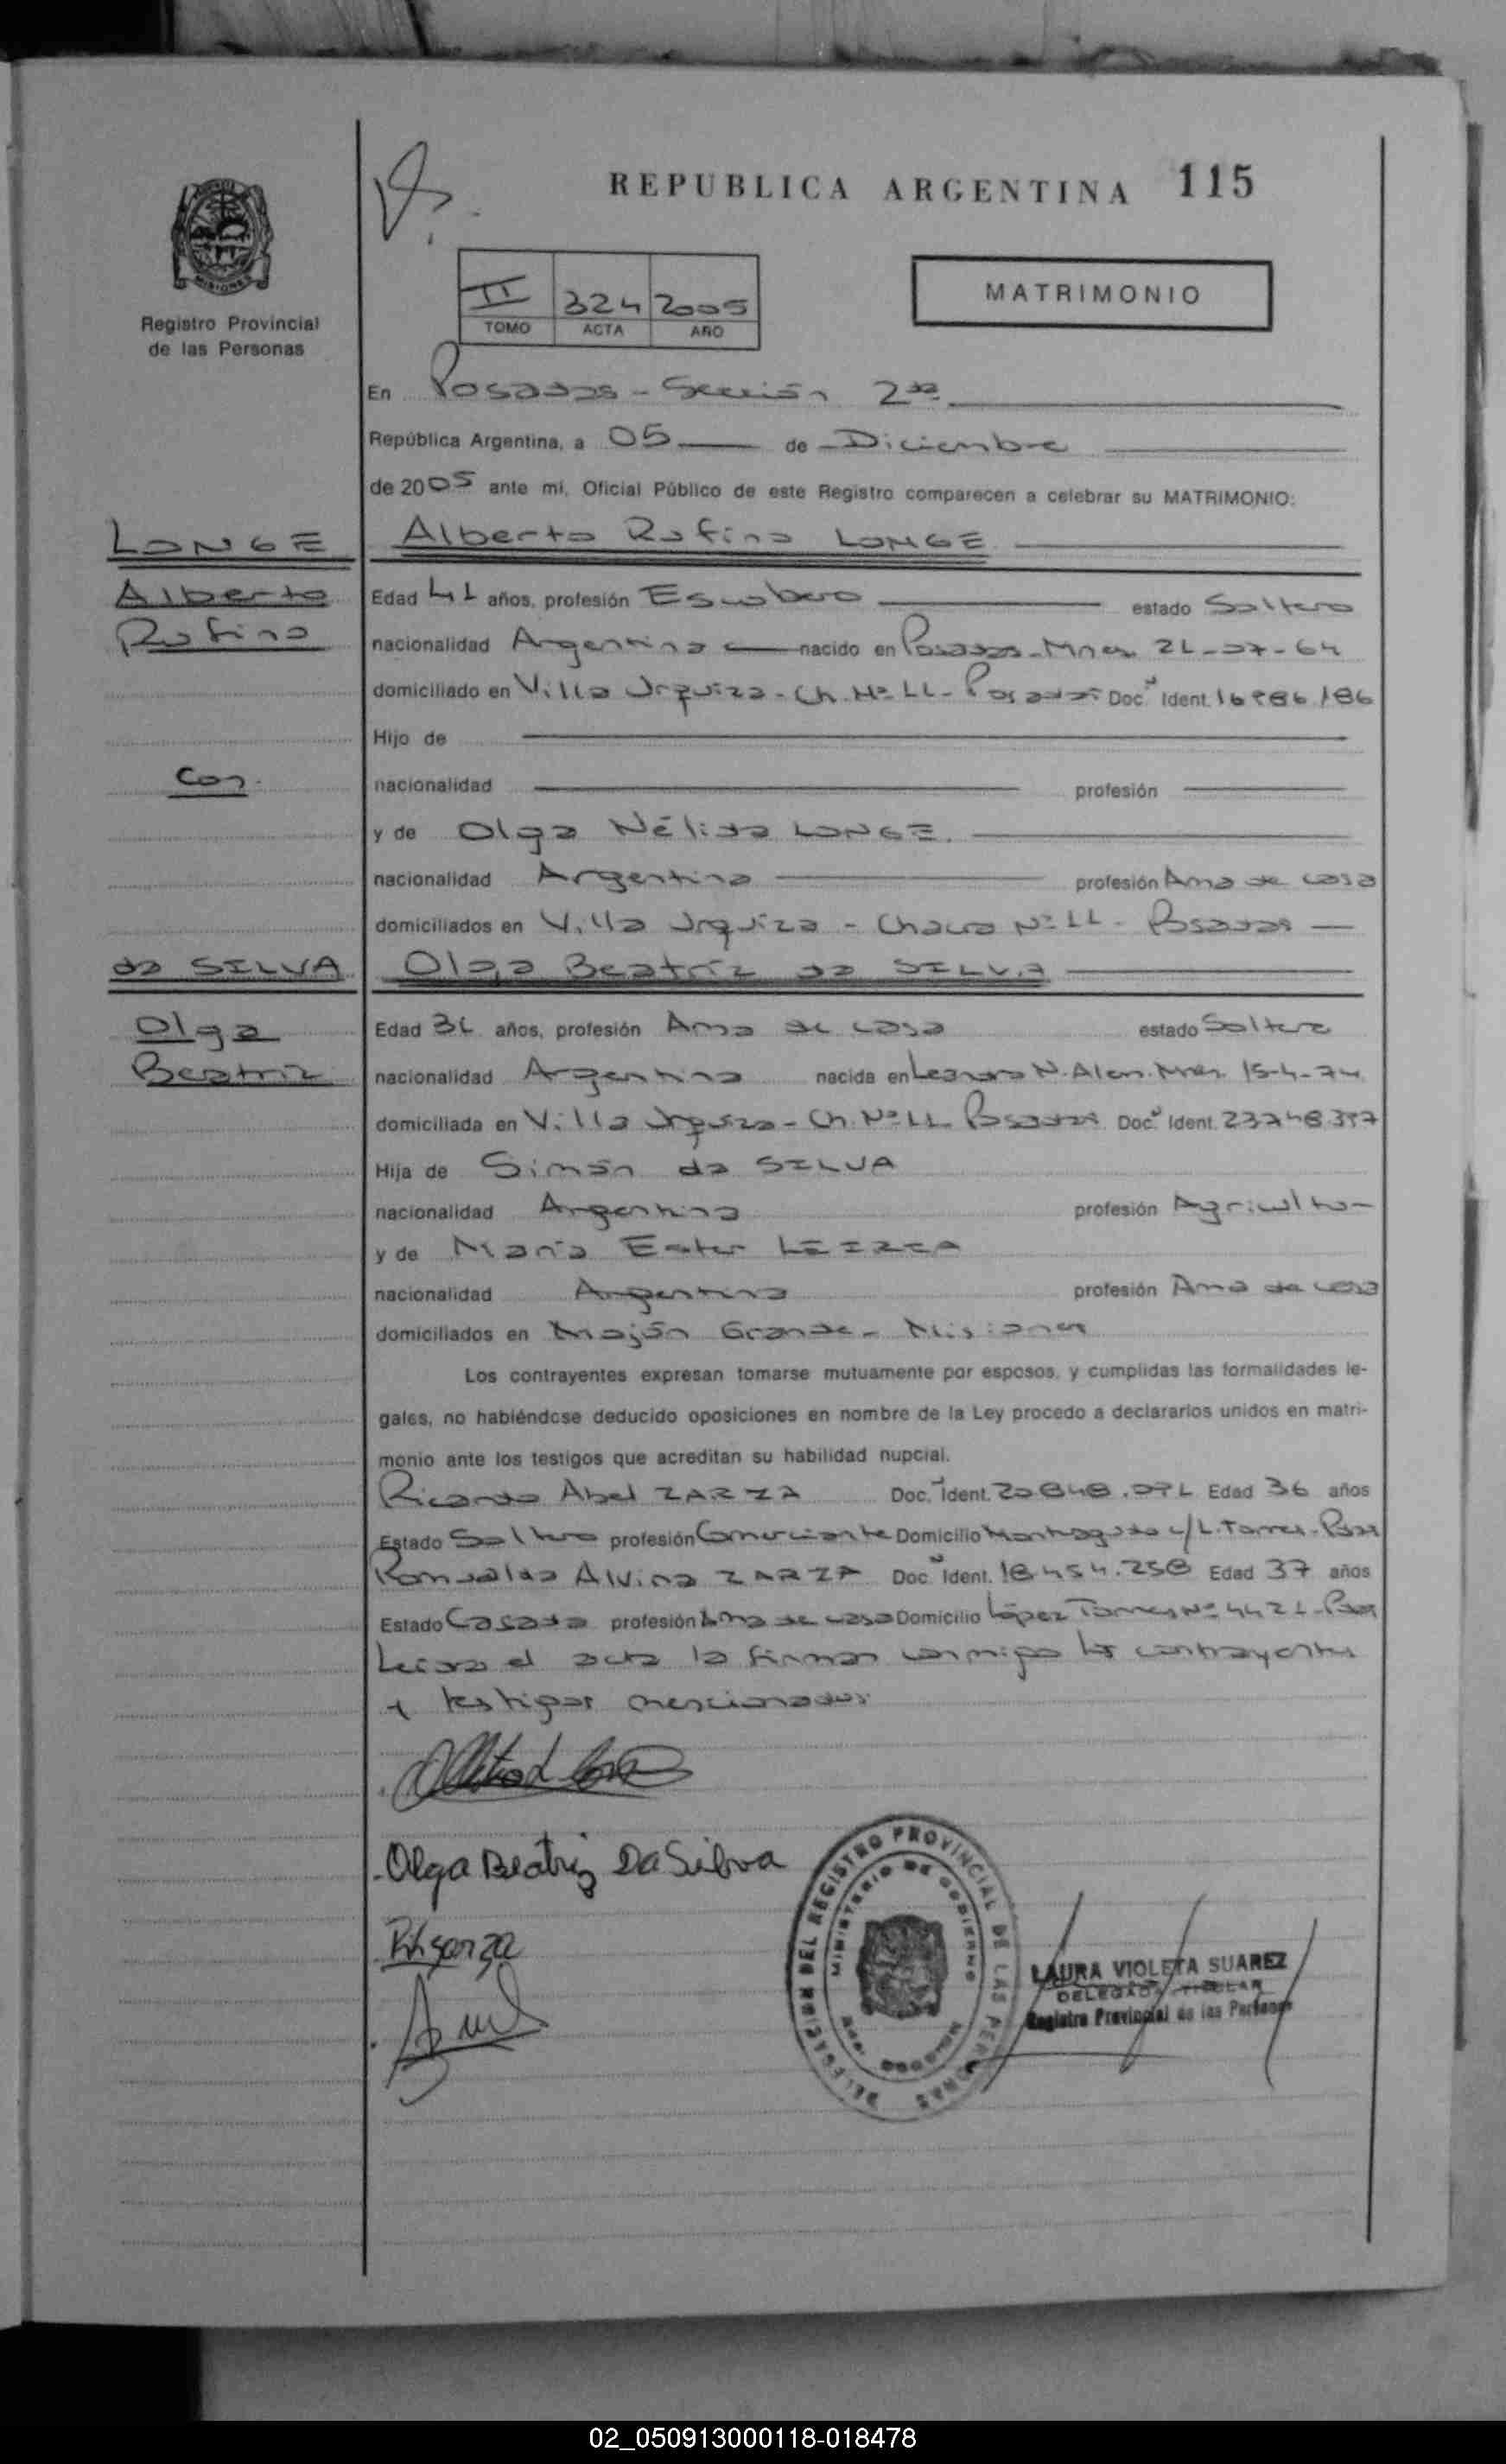 REPUBLICA ARGENTINA 115
MISIONES
Registro Provincial
de las Personas
II 324 2005
TOMO ACTA AÑO
MATRIMONIO
En Posadas - Sección 2da
República Argentina, a 05 de Diciembre
de 2005 ante mí, Oficial Público de este Registro comparecen a celebrar su MATRIMONIO:
LONGE
Alberto Rufino LONGE
Alberto
Rufino
Edad 41 años, profesión Escobero estado Soltero
nacionalidad Argentina nacido en Posadas - Mnes 21-07-64
domiciliado en Villa Urquiza - Ch. Nº 11 - Posadas Doc. Ident. 16.986.186
Hijo de
con
nacionalidad profesión
y de Olga Nélida LONGE.
nacionalidad Argentina profesión Ama de casa
domiciliados en Villa Urquiza - Chacra Nº 11 - Posadas
da SILVA
Olga Beatríz da SILVA
Olga
Beatriz
Edad 31 años, profesión Ama de casa estado Soltera
nacionalidad Argentina nacida en Leandro N. Alem. Mnes. 15-4-74
domiciliada en Villa Urquiza - Ch. Nº 11 Posadas Doc. Ident. 23.748.397
Hija de Simón da SILVA
nacionalidad Argentina profesión Agricultor
y de María Ester
nacionalidad Argentina profesión Ama de casa
domiciliados en Mojón Grande - Misiones
Los contrayentes expresan tomarse mutuamente por esposos, y cumplidas las formalidades le-
gales, no habiéndose deducido oposiciones en nombre de la Ley procedo a declararlos unidos en matri-
monio ante los testigos que acreditan su habilidad nupcial.
Ricardo Abel ZARZA Doc. Ident. 20.848.071 Edad 36 años
Estado Soltero profesión Comerciante Domicilio Monteagudo c/L. Torres - Pdas
Romualda Alvina ZARZA Doc. Ident. 18.454.258 Edad 37 años
Estado Casada profesión Ama de casa Domicilio López Torres Nº 4421 - Pdas
Leída el acta la firman conmigo los contrayentes
y testigos mencionados:
Olga Beatriz Da Silva
DELEGACION DEL REGISTRO PROVINCIAL DE LAS PERSONAS
MINISTERIO DE GOBIERNO
LAURA VIOLETA SUAREZ
DELEGADA TITULAR
Registro Provincial de las Personas
02_050913000118-018478